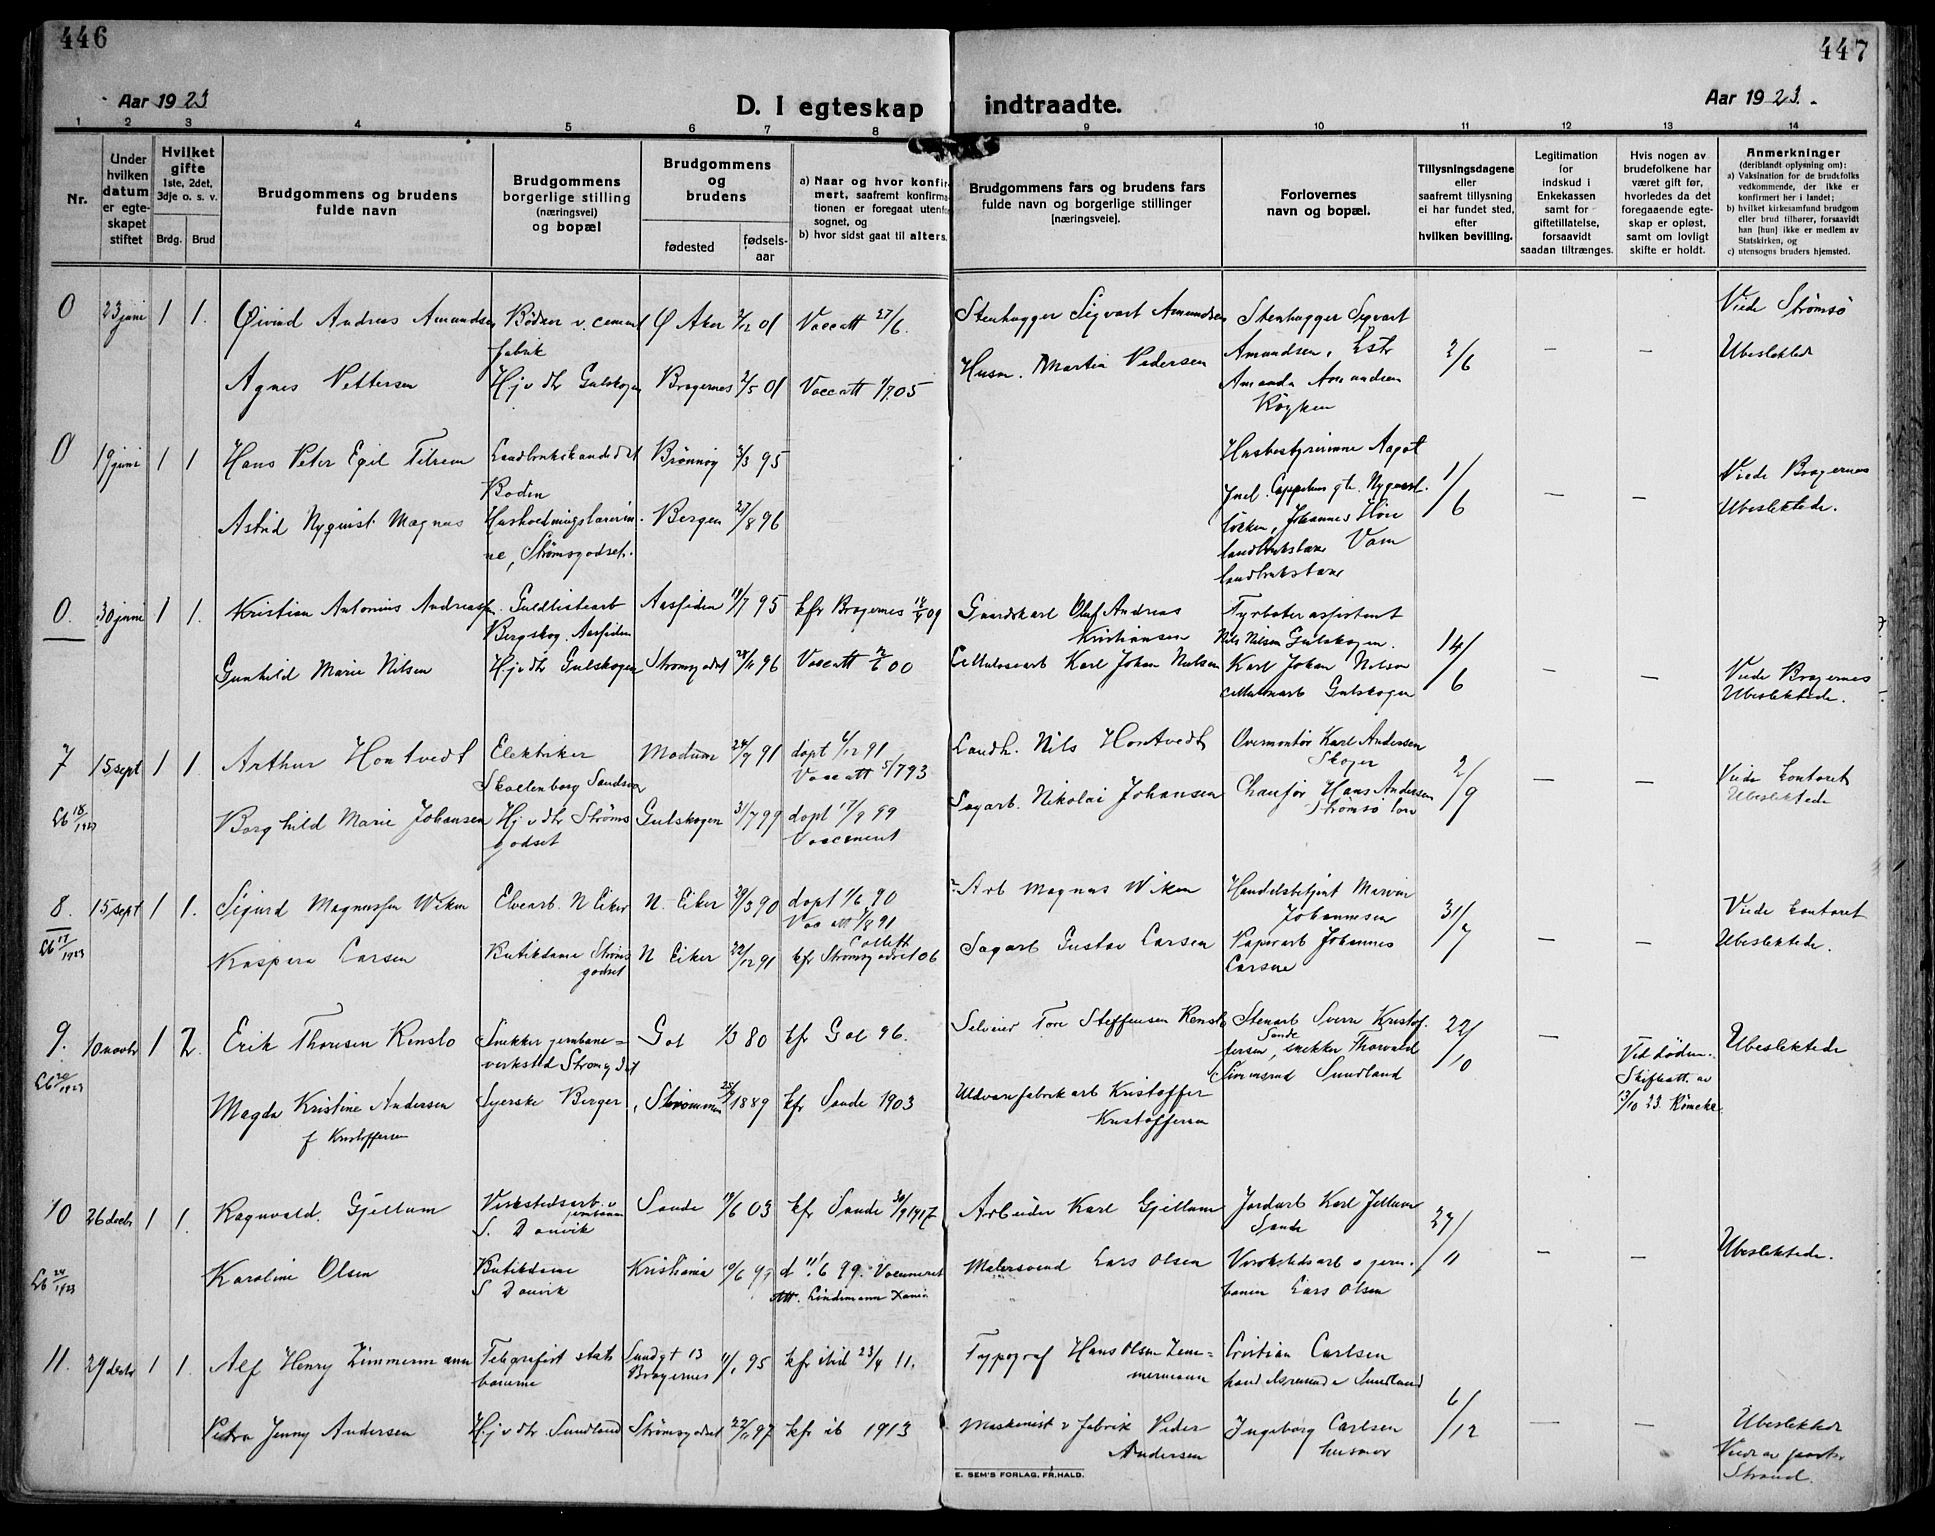 446
447
Aar 1923
D. I egteskap indtraadte.
Aar 1923.
1 2 3 4 5 6 7 8 9 10 11 12 13 14
Nr.
Under
hvilken
datum
er egte-
skapet
stiftet
Hvilket
gifte
1ste, 2det,
3dje o. s. v.
Brdg. Brud
Brudgommens og brudens
fulde navn
Brudgommens
borgerlige stilling
(næringsvei)
og bopæl
Brudgommens
og
brudens
fødested
fødsels-
aar
a) Naar og hvor konfir-
mert, saafremt konfirma-
tionen er foregaat utenfor
sognet, og
b) hvor sidst gaat til alters.
Brudgommens fars og brudens fars
fulde navn og borgerlige stillinger
[næringsveie].
Forlovernes
navn og bopæl.
Tillysningsdagene
eller
saafremt tillysning
ei har fundet sted,
efter
hvilken bevilling.
Legitimation
for
indskud i
Enkekassen
samt for
giftetillatelse,
forsaavidt
saadan tiltrænges.
Hvis nogen av
brudefolkene har
været gift før,
hvorledes da det
foregaaende egte-
skap er opløst,
samt om lovligt
skifte er holdt.
Anmerkninger
(deriblandt oplysning om):
a) Vaksination for de brudefolks
vedkommende, der ikke er
konfirmert her i landet;
b) hvilket kirkesamfund brudgom
eller brud tilhører, forsaavidt
han [hun] ikke er medlem av
Statskirken, og
c) utensogns bruders hjemsted.
0 23 juni 1 1.
Øivind Andreas Amundsen
Bødker v. cement
fabrik
Ø Aker 2/12 01
Vaccatt 27/6.
Stenhugger Sigvart Amundsen
Stenhugger Sigvart
Amundsen,
Amanda Amundsen
Røyken
2/6
—
—
Viede Strømsø
Ubeslektede
Agnes Pettersen
Hj v dtr Gulskogen
Bragernes 2/5 01
Vaccatt 1/7.05
Husm. Martin Pedersen
0 19 juni 1 1
Hans Peter Egil Tilrem
Landbrukskandidat
Bodin
Brønnøy 3/3 95
Husbestyrerinne Aagot
løkken, Johannes
landbrukslærer
1/6
—
—
Viede Bragernes
Ubeslektede.
Astrid Nyquist Magnus
Husholdningslærerin-
ne, Strømsgodset.
Bergen 27/8 96
0. 30 juni 1 1.
Kristian Antonius Andreassen
Guldlistearb
Bergskog. Aassiden
Aassiden 19/7 95
kfr Bragernes 09
Gaardskarl Oluf Andreas
Kristiansen
Fyrbøterassistent
Nils Nilsen Gulskogen.
Karl Johan Nilsen
cellulosearb Gulskogen
14/6
—
—
Viede Bragernes
Ubeslektede.
Gunhild Marie Nilsen
Hj v dtr Gulskogen
Strømsgodset 28/11 96
Vaccatt 00
Cellulosearb Karl Johan Nilsen
7 15 sept 1 1.
Arthur Hontvedt
Elektriker
Skollenborg Sandsvær
Modum 24/9 91
døpt 6/12 91
Vaccatt 5/7 93
Landh. Nils Hontvedt
Overmontør Karl Andersen
Skoger
Chauffør Hans Andersen
2/9
—
—
Viede kontoret
Ubeslektede
Lb 18/1923
Borghild Marie Johansen
Hj v dtr Strøms
godset
Gulskogen 31/7 99
døpt 17/9 99
Vaccineret
Sagarb. Nikolai Johansen
8. 15 sept 1 1.
Sigurd Magnussen Wiken
Elvearb. N Eiker
N. Eiker 29/3 90
døpt 1/6 90
Vac att 7/8 91
Arb Magnus Wiken
Handelsbetjent Marius
Johannesen
Papirarb Johannes
Larsen
31/7
—
—
Viede kontoret
Ubeslektede.
Lb 17/1923
Kaspara Larsen
Butikdame Strøms
godset
N Eiker 22/12 91
kfr Strømsgodset 06
Sagarb Gustav Larsen
9. 10 novbr 1 2.
Erik Thoresen Renslo
Snekker jernbane=
verksted Strømsgodset
Gol 1/3 80
kfr Gol 96.
Selveier Tore Steffensen Renslo
Stenarb Sverre Kristof.
fersen, snekker Thorvald
Simensrud Sundland
Sande
22/10
—
Ved døden.
Skifteatt. av
3/10 23.
Ubeslektede
Lb 20/1923
Magda Kristine Andersen
f Kristoffersen
Syerske Berger
Strømmen 25/2 1889
kfr Sande 1903
Uldvarefabrikarb Kristoffer
Kristoffersen
10 26 decbr 1 1.
Ragnvald. Gjellum
Verkstedsarb. v
jernbanen
S. Danvik
Sande 19/6 03
kfr Sande 30/9 1917
Arbeider Karl Gjellum
Jordarb Karl Jellum
Sande
Verkstedsarb v jern-
banen Lars Olsen
27/11
—
—
Ubeslektede.
Lb 24/1923
Karoline Olsen
Butikdame
S Danvik
Kristiania 10/6 99
d 11/6 99. Vaccineret
Att. Lindemann
Malersvend Lars Olsen
11. 29 decbr 1 1.
Alf Henry Zimmermann
Telegrafist stats
banerne
Sundgt 13
Bragernes 11/1 95
kfr ibid 23/4 11.
Typograf Hans Olsen Zim=
mermann
Cristian Carlsen
handelsreisende Sundland
Ingeborg Carlsen
husmor
6/12
—
—
Ubeslektede
Viede av
Strand.
Petra Jenny Andersen
Hj v dtr. Sundland
Strømsgodset 22/11 97
kfr ib 1913
Maskinist v fabrik Peder
Andersen
E. SEM'S FORLAG, FR.HALD.